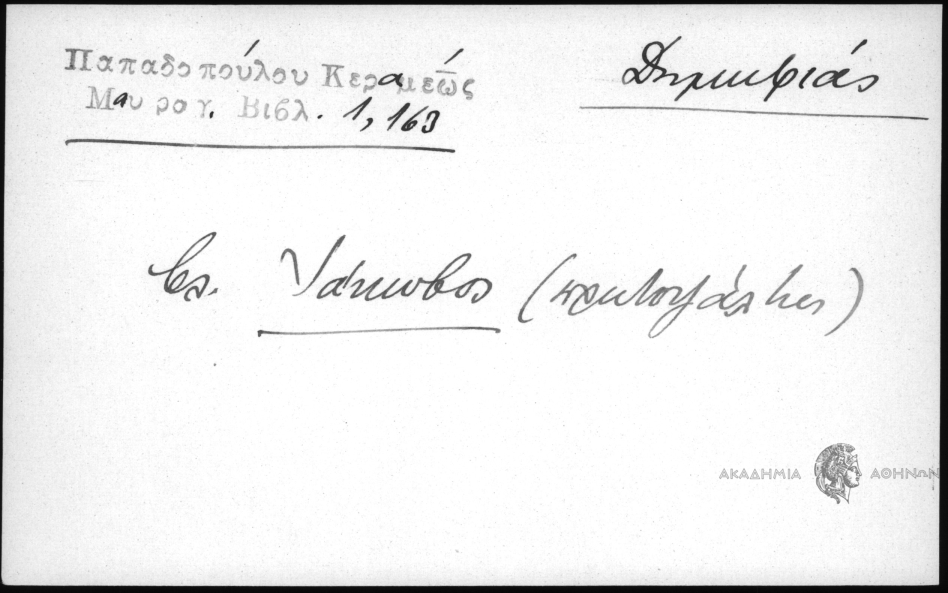 Παπαδοπούλου Κεραμέως
Μαυρογ. Βιβλ. 1, 163
Δημητριάς
βλ. Ἰάκωβος (πρωτοψάλτης)
ΑΚΑΔΗΜΙΑ ΑΘΗΝΩΝ